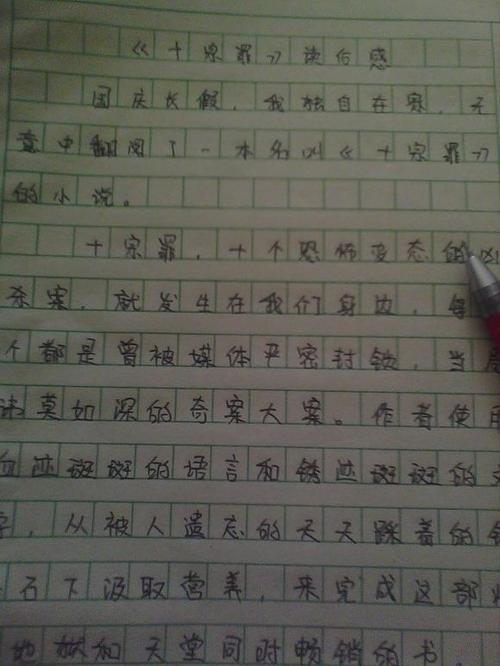 《十宗罪》读后感
国庆长假，我独自在家，无
意中翻阅了一本名叫《十宗罪》
的小说。
十宗罪，十个恐怖变态的凶
杀案，就发生在我们身边，每
个都是曾被媒体严密封锁，当
讳莫如深的奇案大案。作者使用
血迹斑斑的语言和锈迹斑斑的文
字，从被人遗忘的天天踩着的
石下汲取营养，来完成这部
地狱和天堂同时畅销的书